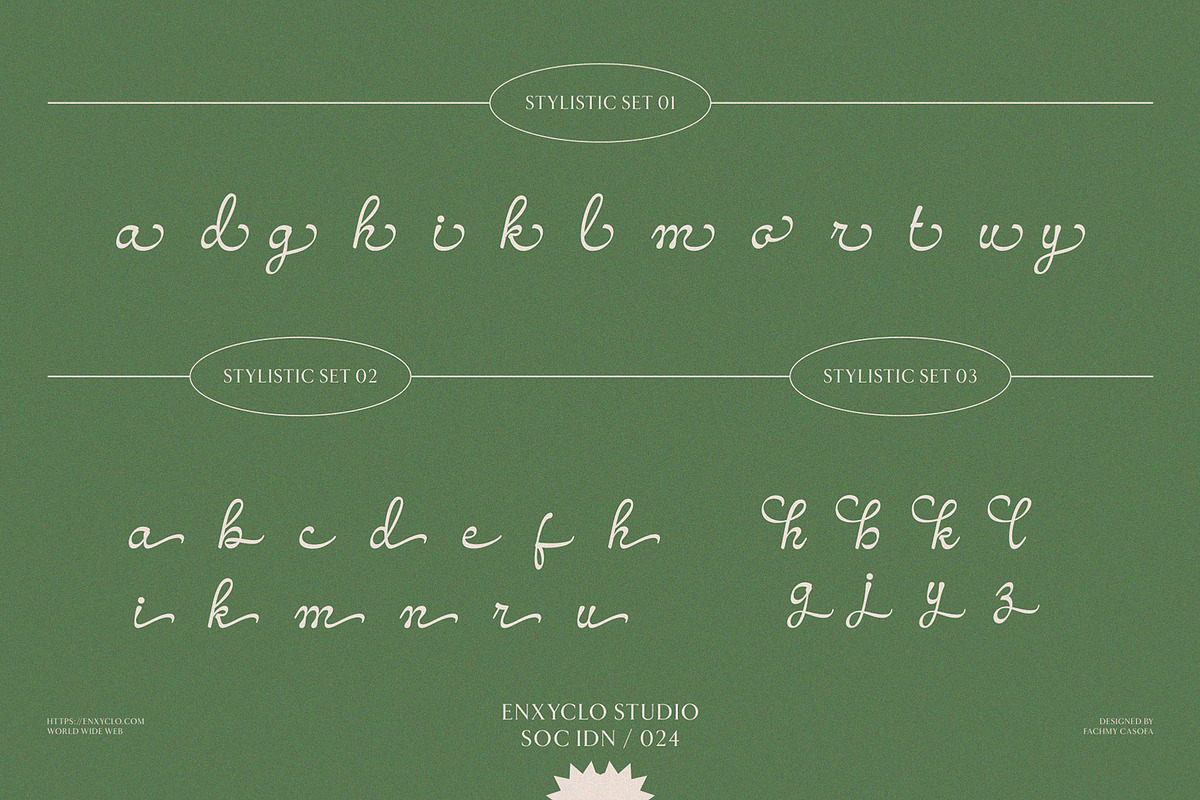 STYLISTIC SET 01
a d g h i k l m o r t w y
STYLISTIC SET 02
STYLISTIC SET 03
a b c d e f h
i k m n r u
h b k l
g j y z
ENXYCLO STUDIO
SOC IDN / 024
HTTPS://ENXYCLO.COM
WORLD WIDE WEB
DESIGNED BY
FACHMY CASOFA